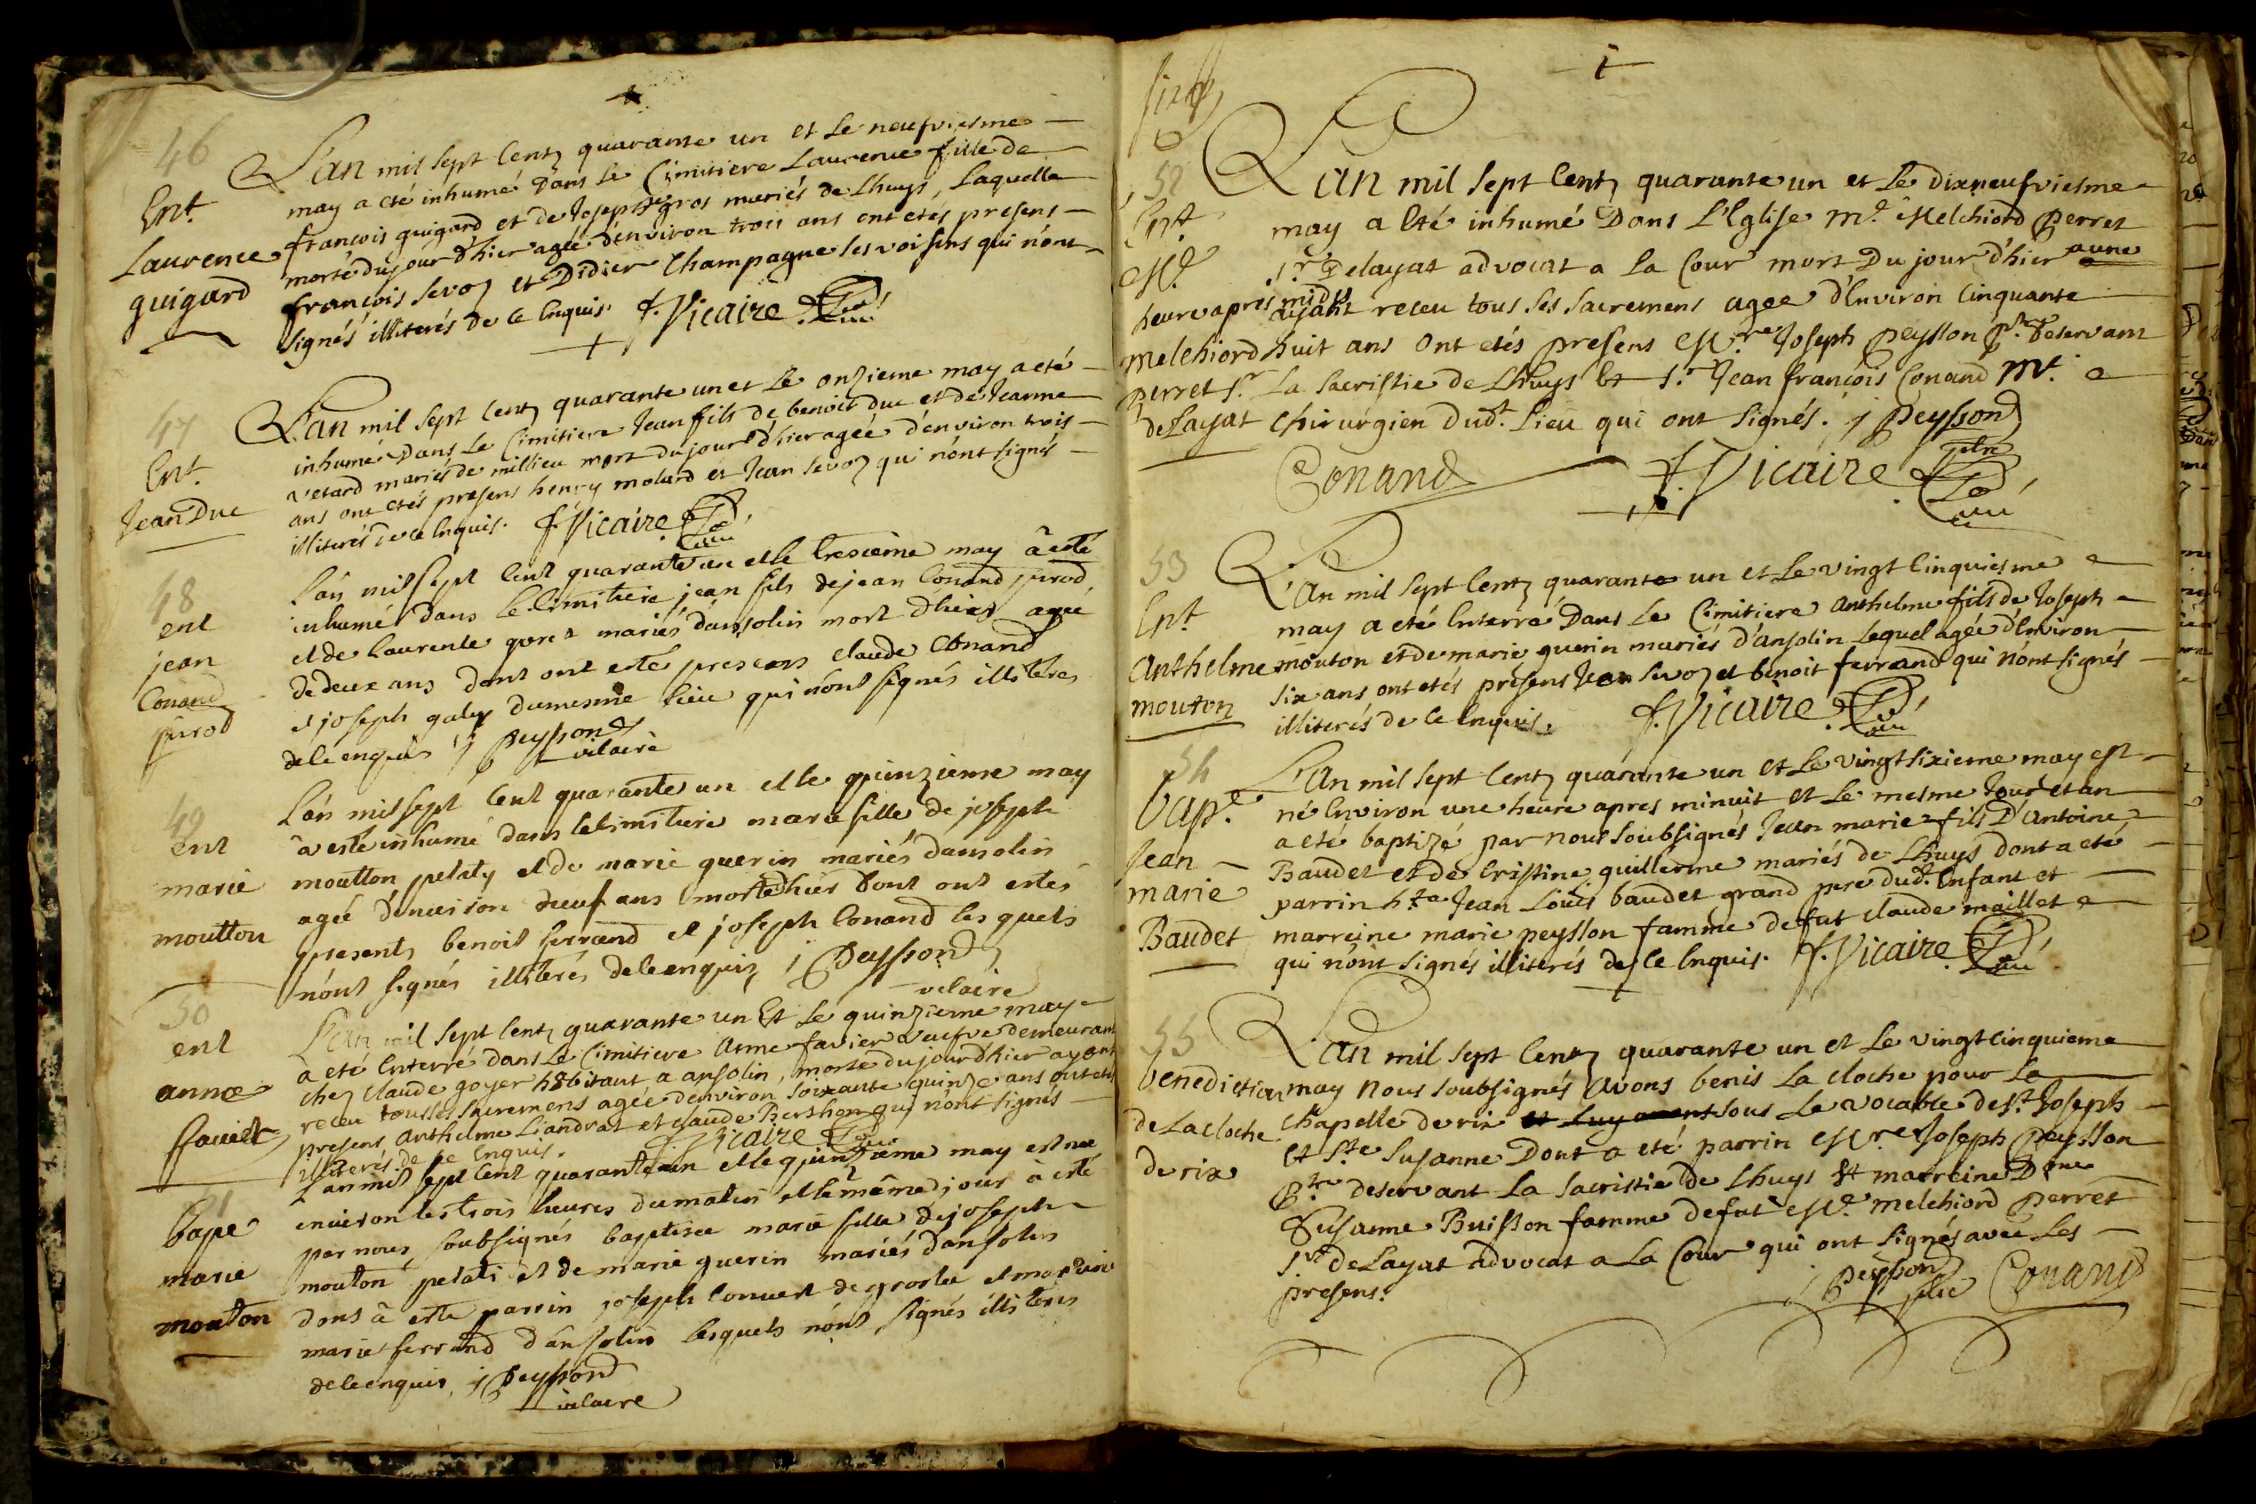 46
L'an mil sept Centz quarante un et Le neufviesme
Ent.
may a eté inhumé Dans Le Cimitiere Laurence fille de
Laurence
francois guigard et de Josephte gros mariés de Lhuys, Laquelle
guigard
morte du jour d'hier agée d'environ trois ans ont etés presens
françois Sevoz et Didier Champagne ses voisins qui n'ont
signés illiterés de ce Enquis. f. Vicaire
47
L'an mil sept Centz quarante un et Le onzieme may a eté
Ent.
inhumé Dans Le Cimitiere Jean fils de benoit duc et de Jeanne
Jean Duc
vetard mariés de millieu mort du jour d'hier agée d'environ trois
ans ont etés presens henry molard et Jean Sevoz qui n'ont signés
illiterés de ce Enquis. f. Vicaire
48
L'an mil sept Cent quarante un et le treizieme may à esté
ent
inhumé dans le Cimitiere jean fils de jean Conand jurod
jean
et de laurente goret mariés d'ansolin mort d'hier agée
Conand
de deux ans dont ont esté presens claude Conand
jurod
et joseph galey du mesme lieu qui n'ont signés illiteres
de ce enquis j Peysson vicaire
49
L'an mil sept Cent quarante un et le quinzieme may
ent
à esté inhumé dans le Cimitiere marie fille de joseph
marie
moutton pelaty et de marie guerin mariés d'ansolin
moutton
agée d'environ neuf ans morte d'hier dont ont estes
presentz benoit ferrand et joseph Conand lesquels
n'ont signés illiterés de ce enquiz j Peysson
vicaire
50
L'an mil sept Centz quarante un Et Le quinzieme may
ent
a eté Enterré dans Le Cimitiere anne favier veufve demeurant
anne
chez Claude goyer habitant a ansolin, morte du jour d'hier ayant
favier
receu tous ses sacremens agée d'environ soixante quinze ans ont etés
presens anthelme Liandrat et claude Berthon qui n'ont signés
illiterés de ce Enquis. f. Vicaire
51
L'an mil sept Cent quarante un et le quinzieme may est née
bape
environ les trois heures du matin et le même jour à esté
marie
par nous soubsignés baptisée marie fille de joseph
mouton
mouton pelati et de marie guerin mariés d'ansolin
dont à esté parrin joseph Convert de groslée et marraine
marie ferrand d'ansolin lesquels n'ont signés illiterés
de ce enquis, j Peysson
vicaire
52
L'an mil sept Centz quarante un et Le dixneufviesme
Ent.
may a Eté inhumé Dans L'Eglise Me. Melchiord Perret
Me.
Sr. Delayat advocat a La Cour mort Du jour d'hier a une
heure apres midy
ayant receu tous ses sacremens agée d'Environ Cinquante
Melchiord
huit ans ont etés presens Mre. Joseph Peysson Ptre. Deservant
perret Sr
La Sacristie de Lhuys et Sr. Jean françois Conand Mt.
de Layat
Chirurgien dudt. Lieu qui ont signés. j Peysson
ptre
Conand f. Vicaire
53
L'an mil sept Centz quarante un et Le vingt Cinquiesme
Ent.
may a eté Enterré Dans Le Cimitiere anthelme fils de Joseph
anthelme
mouton et de marie guerin mariés d'ansolin Lequel agée d'Environ
mouton
six ans ont etés présens Jean Sevoz et benoit ferrand qui n'ont signés
illiterés de ce Enquis. f. Vicaire
54
L'an mil sept Centz quarante un et Le vingt sixieme may est
bapt.
né Environ une heure apres minuit et Le mesme Jour et an
a eté baptizé par nous soubsignés Jean marie fils D'antoine
Jean
Baudet et de Cristine guillerme mariés de Lhuys dont a eté
marie
parrin hte Jean Louis baudet grand pere dudt. Enfant et
Baudet
marreine marie peysson famme de fut claude maillet
qui n'ont signés illiterés de ce Enquis. f. Vicaire
55
L'an mil sept Centz quarante un et Le vingt cinquieme
benediction
may nous soubsignés avons benis La cloche pour La
de La cloche
Chapelle de rix sous Le vocable de St. Joseph
de rix
et Ste Susanne Dont a eté parrin Mre. Joseph Peysson
Ptre deservant La Sacristie de Lhuys et marreine Dme
Susanne Buisson famme de fut Me. melchiord Perret
Sr. de Layat advocat a La Cour qui ont signés avec Les
presens. j Peysson ptre Conand